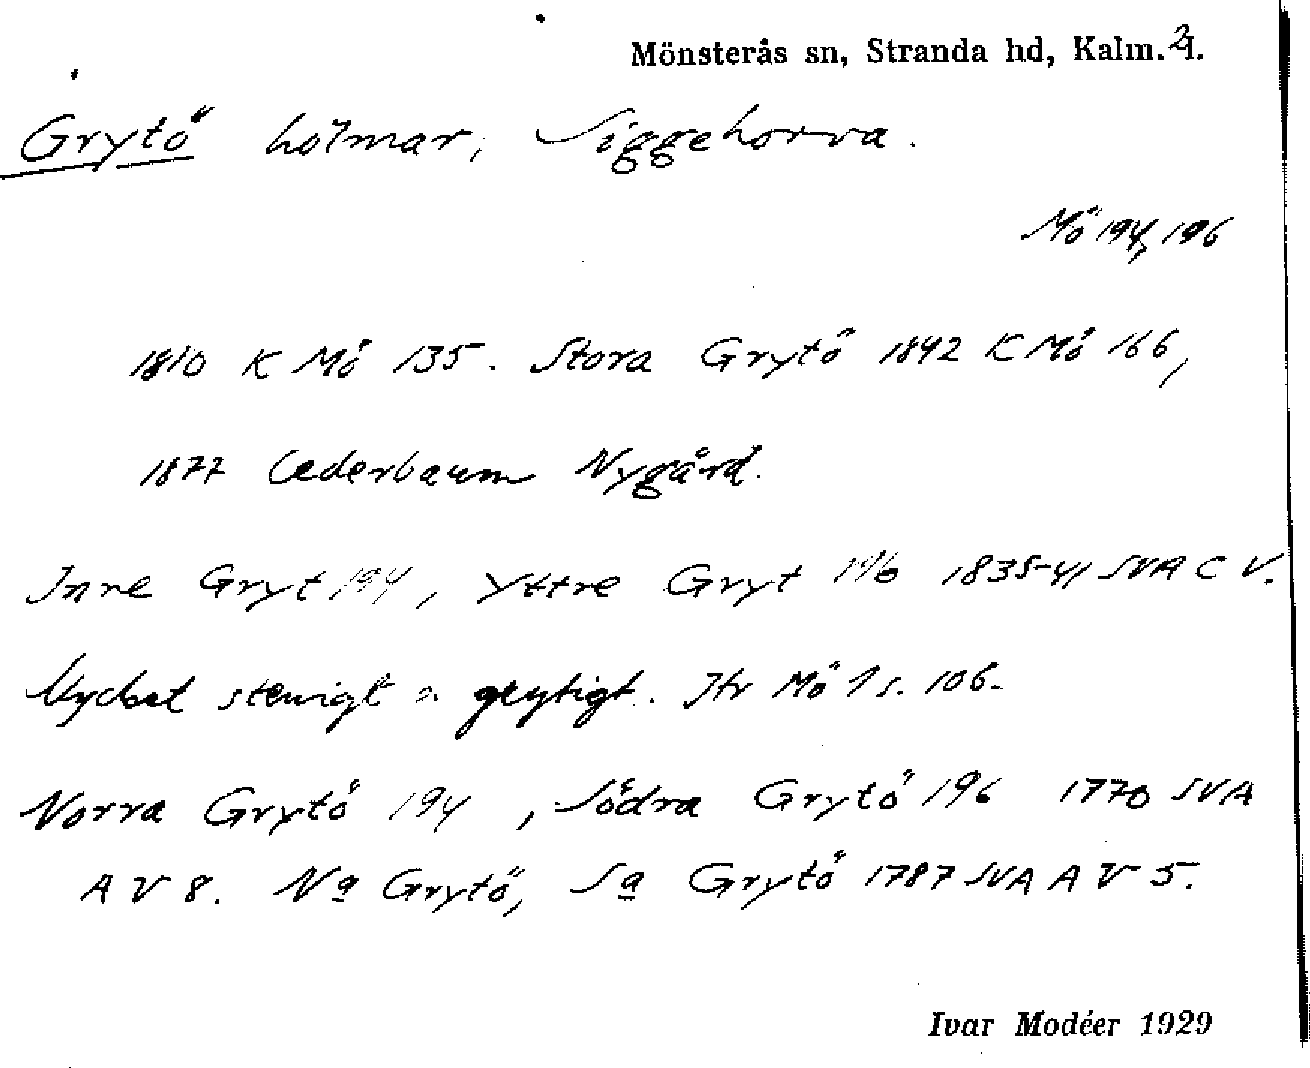 Mönsterås sn, Stranda hd, Kalm. l.
Grytö holmar, Siggehorva.
Mö 194, 196
1810 K Mö 135. Stora Grytö 1892 K Mö 166,
1877 Cederbaum Nygård.
Inre Gryt 194, Yttre Gryt 196 1835-41 SVA C V.
Mycket stenigt o. grytigt. Htr Mö 1 s. 106.
Norra Grytö 194, Södra Grytö 196 1770 SVA
A V 8. Na Grytö, Sa Grytö 1787 SVA A V 5.
Ivar Modéer 1929